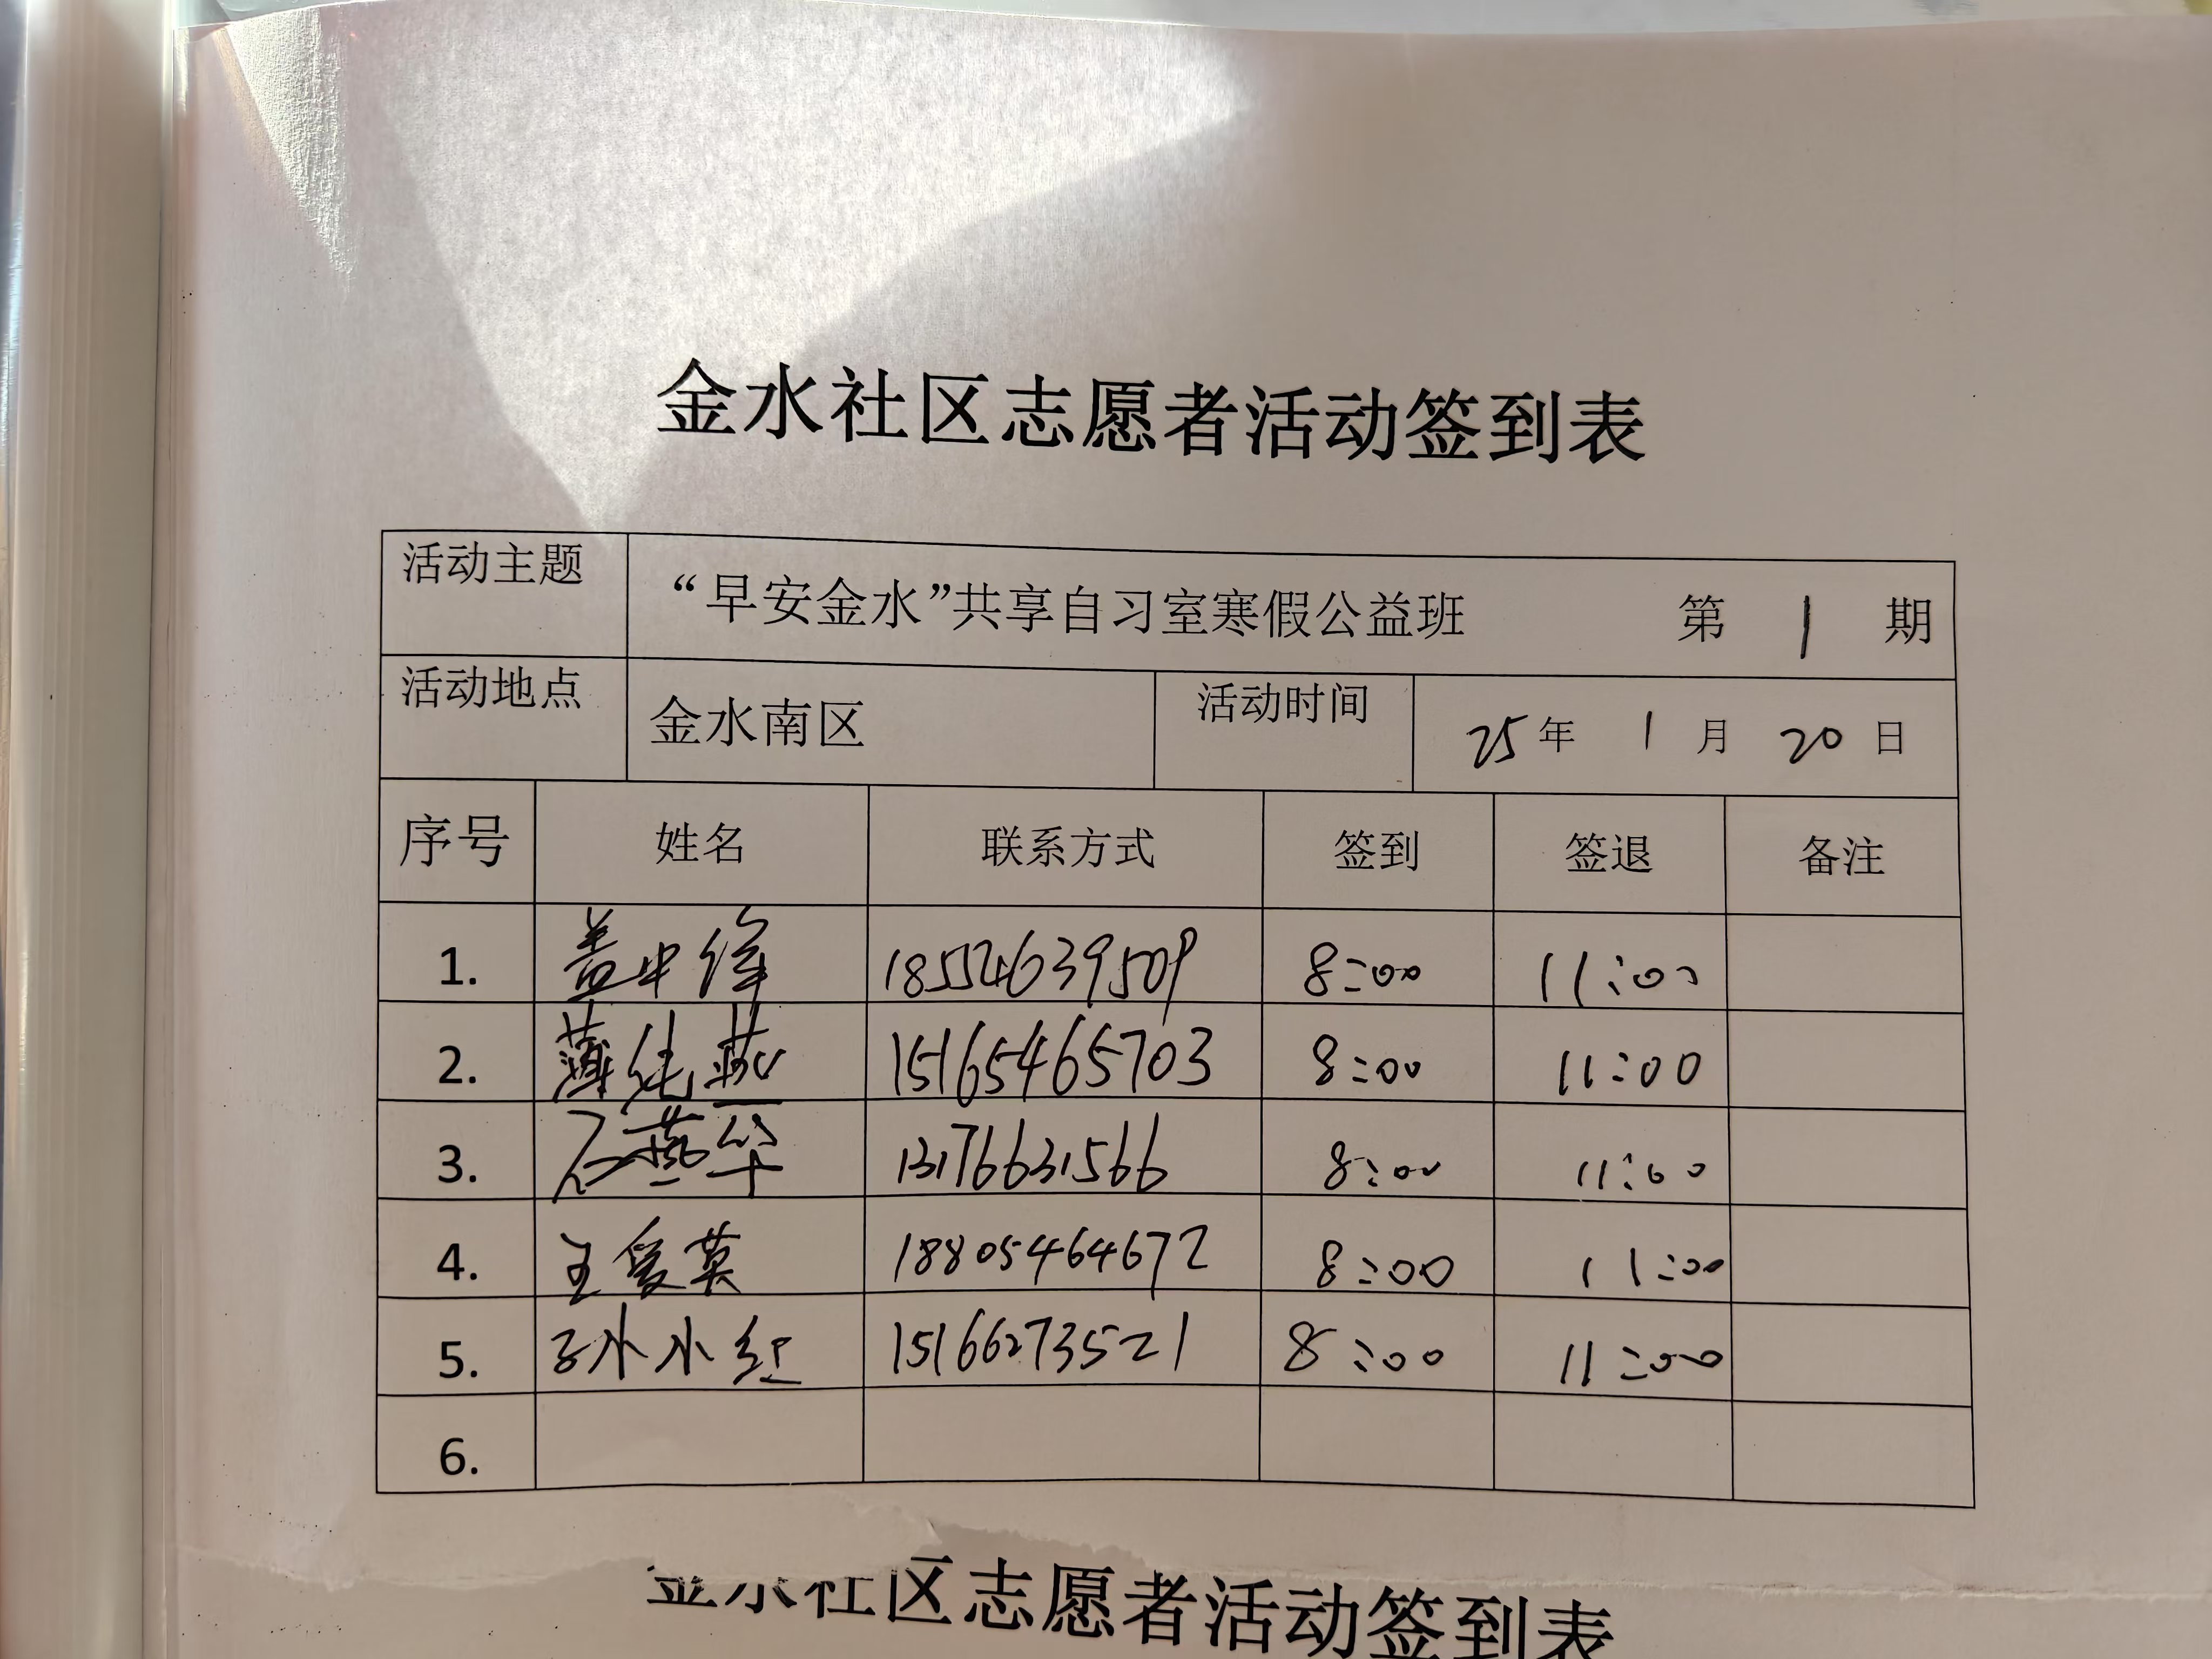 金水社区志愿者活动签到表
活动主题 “早安金水”共享自习室寒假公益班 第 1 期
活动地点 金水南区 活动时间 25年 1月 20日
序号 姓名 联系方式 签到 签退 备注
1. 盖中 18554639509 8:00 11:00
2. 薄纯燕 15165465703 8:00 11:00
3. 石燕华 13176631566 8:00 11:00
4. 王爱英 18805464672 8:00 11:00
5. 孙小红 15166273521 8:00 11:00
6.
金水社区志愿者活动签到表